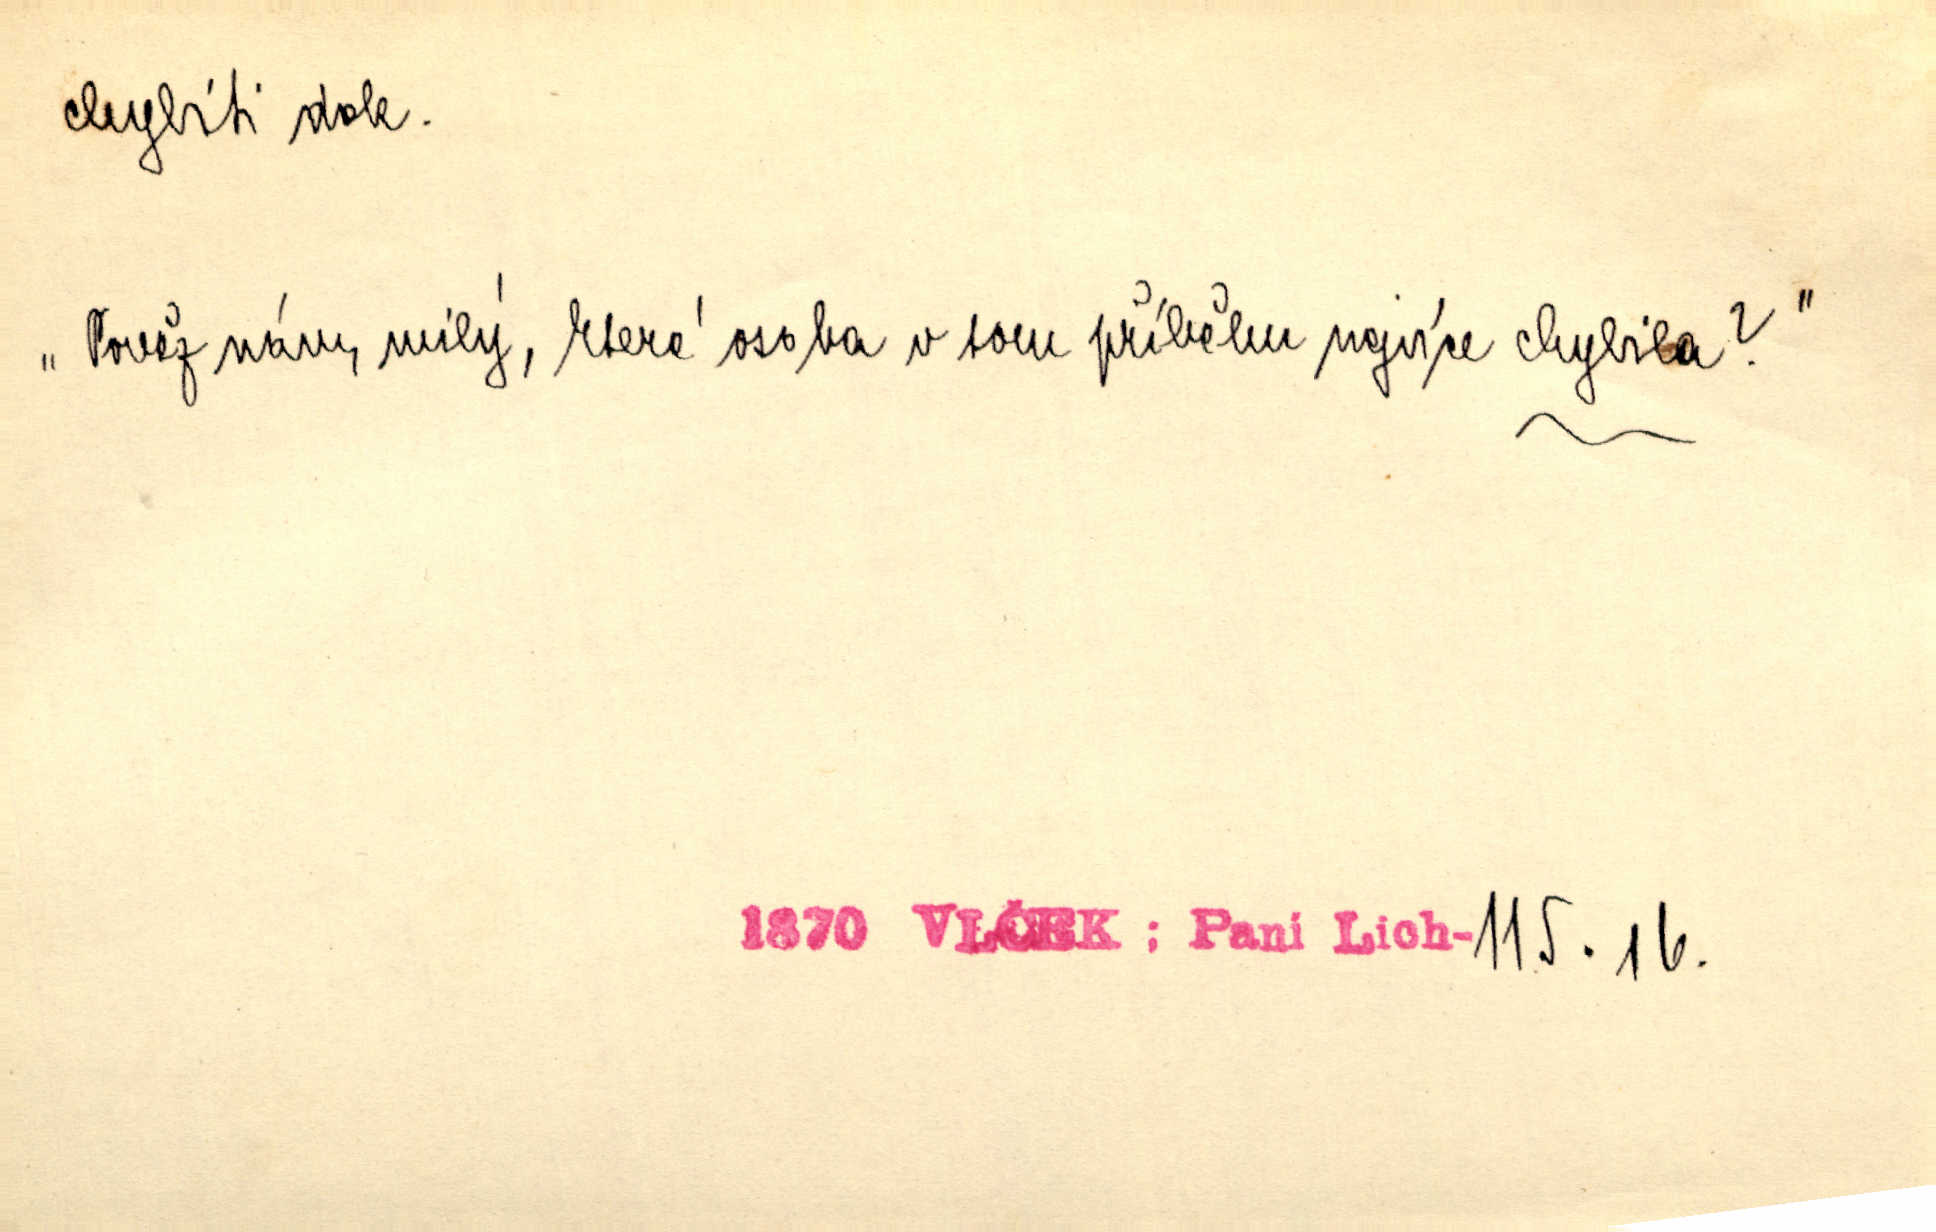 chybíti dok.
„Pověz nám, milý, která osoba v tom příběhu nejvíce chybila?"
1870 VLČEK ; Paní Lich- 115. 16.